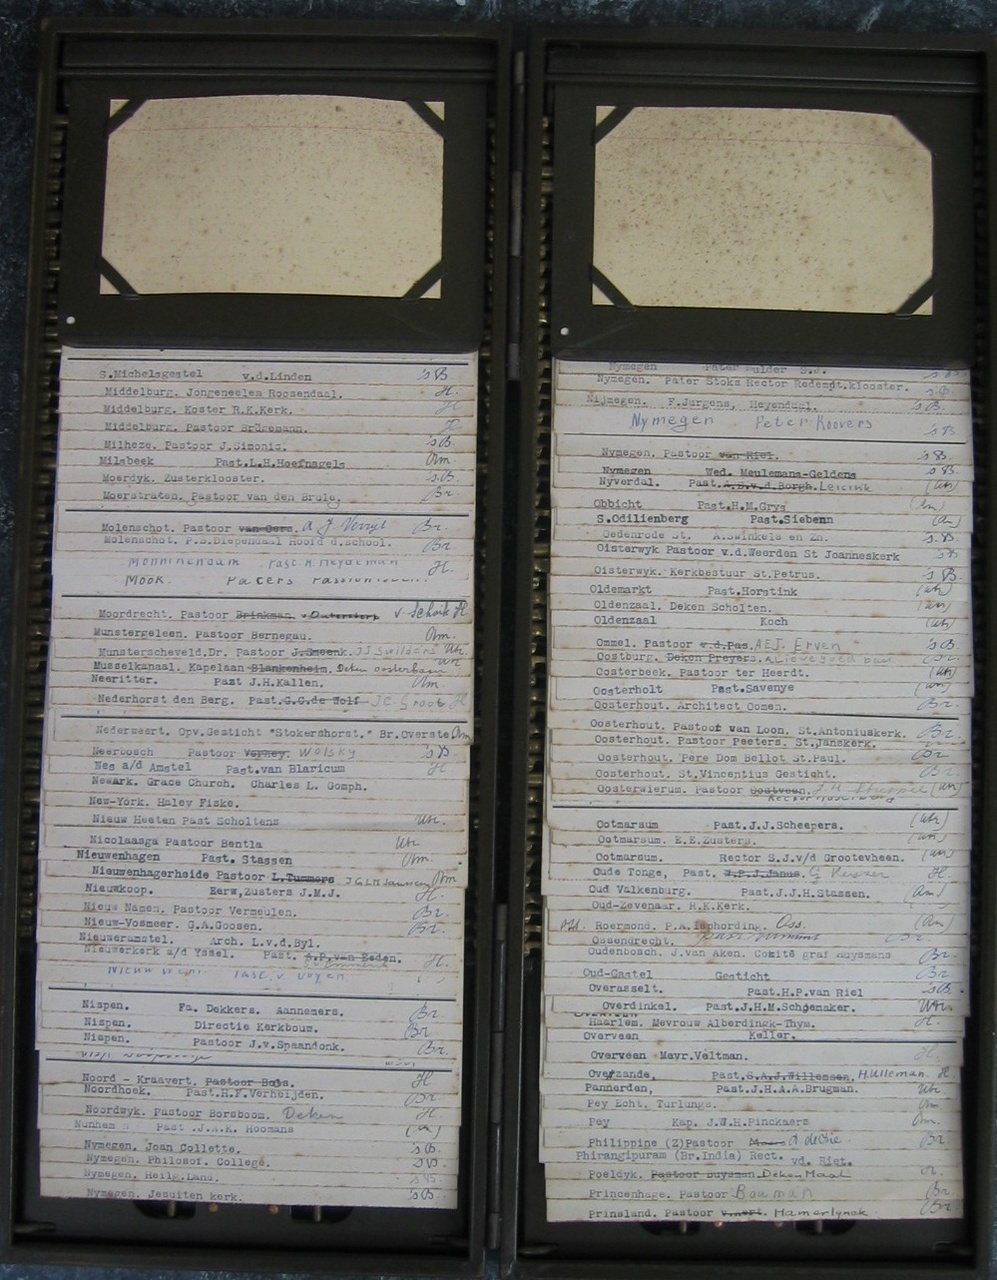 S.Michelsgestel v.d.Linden 'sB
Middelburg. Jongeneelen Roosendaal. H.
Middelburg. Koster R.K.Kerk. H
Middelburg. Pastoor Brügemann. H
Milheze. Pastoor J.Simonis. 'sB
Milsbeek Past.L.H.Hoefnagels Rm.
Moerdyk. Zusterklooster. 'sB
Moerstraten. Pastoor van den Brule. Br
Molenschot. Pastoor van Oers. Br.
Molenschot. P.S.Diependaal Hoofd d.school. Br
Monnikendam Past. H. Heydeman H.
Mook. Paters Passionisten.
Moordrecht. Pastoor Brinkman. v Schaik H
Munstergeleen. Pastoor Bernegau. Rm.
Munsterscheveld.Dr. Pastoor J.Smeenk. Utr.
Musselkanaal. Kapelaan Blankenheim. Deken Utr
Neeritter. Past J.H.Kallen. Rm.
Nederhorst den Berg. Past.G.C.de Wolf J C Groot H
Nederweert. Opv.Gesticht "Stokershorst." Br.Overste Rm
Neerbosch Pastoor Verhey. Wolsky 'sB
Nes a/d Amstel Past.van Blaricum H
Newark. Grace Church. Charles L. Gomph.
New-York. Haley Fiske.
Nieuw Heeten Past Scholtens Utr.
Nicolaasga Pastoor Bentla Utr
Nieuwenhagen Past. Stassen Rm.
Nieuwenhagerheide Pastoor L.Tummers Rm
Nieuwkoop. Eerw.Zusters J.M.J. H.
Nieuw Namen. Pastoor Vermeulen. Br.
Nieuw-Vosmeer. C.A.Goosen. Br.
Nieuweramstel. Arch. L.v.d.Byl.
Nieuwerkerk a/d Yssel. Past. A.P.van Eeden. H.
Nispen. Fa. Dekkers. Aannemers. Br
Nispen. Directie Kerkbouw. Br.
Nispen. Pastoor J.v.Spaandonk. Br.
Noord - Kraayert. Pastoor Bols. H
Noordhoek. Past.H.F.Verheijden. Br.
Noordwyk. Pastoor Borsboom. Deken H
Nunhem Past .J.A.R. Hoomans
Nymegen. Joan Collette. 'sB
Nymegen. Philosof. College. 'sB
Nymegen. Heilg.Land. 'sB
Nymegen. Jesuiten kerk. 'sB.
Nymegen Pater Mulder S.J. 'sB
Nymegen. Pater Stoks Rector Redempt.klooster. 'sB.
Nijmegen. F.Jurgens, Heyendaal. 'sB.
Nymegen Peter Roovers 'sB.
Nymegen. Pastoor van Riel. 'sB.
Nymegen Wed. Meulemans-Geldens 'sB.
Nyverdal. Past.A.S.v.d.Borgh. (Utr)
Obbicht Past.H.M.Grys (Rm)
S.Odilienberg Past.Siebenn (Rm)
Oedenrode St. A.Swinkels en Zn. 'sB
Oisterwyk Pastoor v.d.Weerden St Joanneskerk 'sB
Oisterwyk. Kerkbestuur St.Petrus. 'sB.
Oldemarkt Past.Horstink (Utr)
Oldenzaal. Deken Scholten. (Utr)
Oldenzaal Koch (Utr)
Ommel. Pastoor v.d.Pas. AEJ. Erven 'sB
Oostburg. Deken Preyers. Br.
Oosterbeek. Pastoor ter Heerdt. (Utr)
Oosterholt Past.Savenye (Utr)
Oosterhout. Architect Oomen. Br.
Oosterhout. Pastoor van Loon. St.Antoniuskerk. Br.
Oosterhout. Pastoor Peeters. St.Janskerk. Br.
Oosterhout. Pere Dom Bellot St.Paul. Br
Oosterhout. St.Vincentius Gesticht. Br.
Oosterwierum. Pastoor Oostveen. (Utr)
Ootmarsum Past.J.J.Scheepers. (Utr)
Ootmarsum. E.E.Zusters. (Utr)
Ootmarsum. Rector S.J.v/d Grootevheen. (Utr)
Oude Tonge, Past. W.P.J.Janus. H.
Oud Valkenburg. Past.J.J.H.Stassen. (Rm.)
Oud-Zevenaar. R.K.Kerk.
Roermond. P.A.Isphording. Oss. (Rm)
Ossendrecht. Br.
Oudenbosch. J.van Aken. Comité graf Huysmans Br
Oud-Gastel Gesticht Br
Overasselt. Past.H.P.van Riel 'sB.
Overdinkel. Past.J.H.M.Schoemaker. Utr.
Haarlem. Mevrouw Alberdingk-Thym. H.
Overveen Keller.
Overveen Mevr.Veltman. H.
Overzande, Past.S.A.J.Willemsen. H.Ulleman. H
Pannerden, Past.J.H.A.A.Brugman. Utr
Pey Echt. Turlungs. Rm.
Pey Kap. J.W.H.Pinckaers Rm
Philippine (Z)Pastoor Br
Phirangipuram (Br.India) Rect. vd. Riet.
Poeldyk. Pastoor Duysman. Deken Maat H.
Princenhage. Pastoor Bouman Br.
Prinsland. Pastoor Hamerlynck Br.